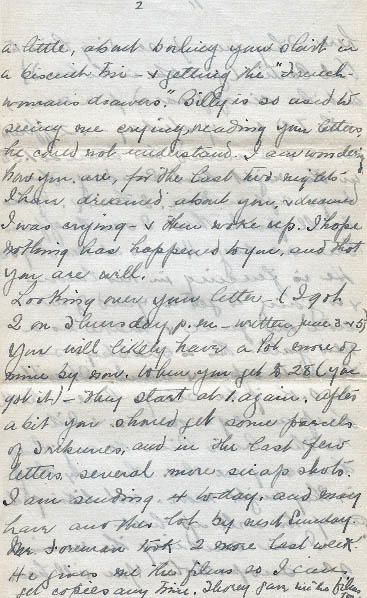 2
a little, about boiling your shirt in
a biscuit tin - & getting the "French-
woman's drawers." Billy is so used to
seeing me crying, reading your letters,
he could not understand. I am wondering
how you are, for the last two nights
I have dreamed about you, & dreamed
I was crying - & then woke up. I hope
nothing has happened to you, and that
you are well.
Looking over your letter - (I got
2 on Thursday p.m - written June 3 & 5)
You will likely have a lot more of
mine by now. When you get # 28 (you
got it) - they start at 1. again. After
a bit you should get some parcels
of Tribunes, and in the last few
letters, several more snap shots.
I am sending 4 to-day, and may
have another lot by next Sunday.
Mr. Foreman took 2 more last week.
He gives me the films so I can
get copies any time. Thorey gave me his films
too